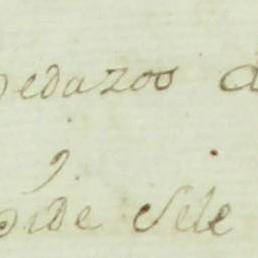 pedazos d
pide Sele